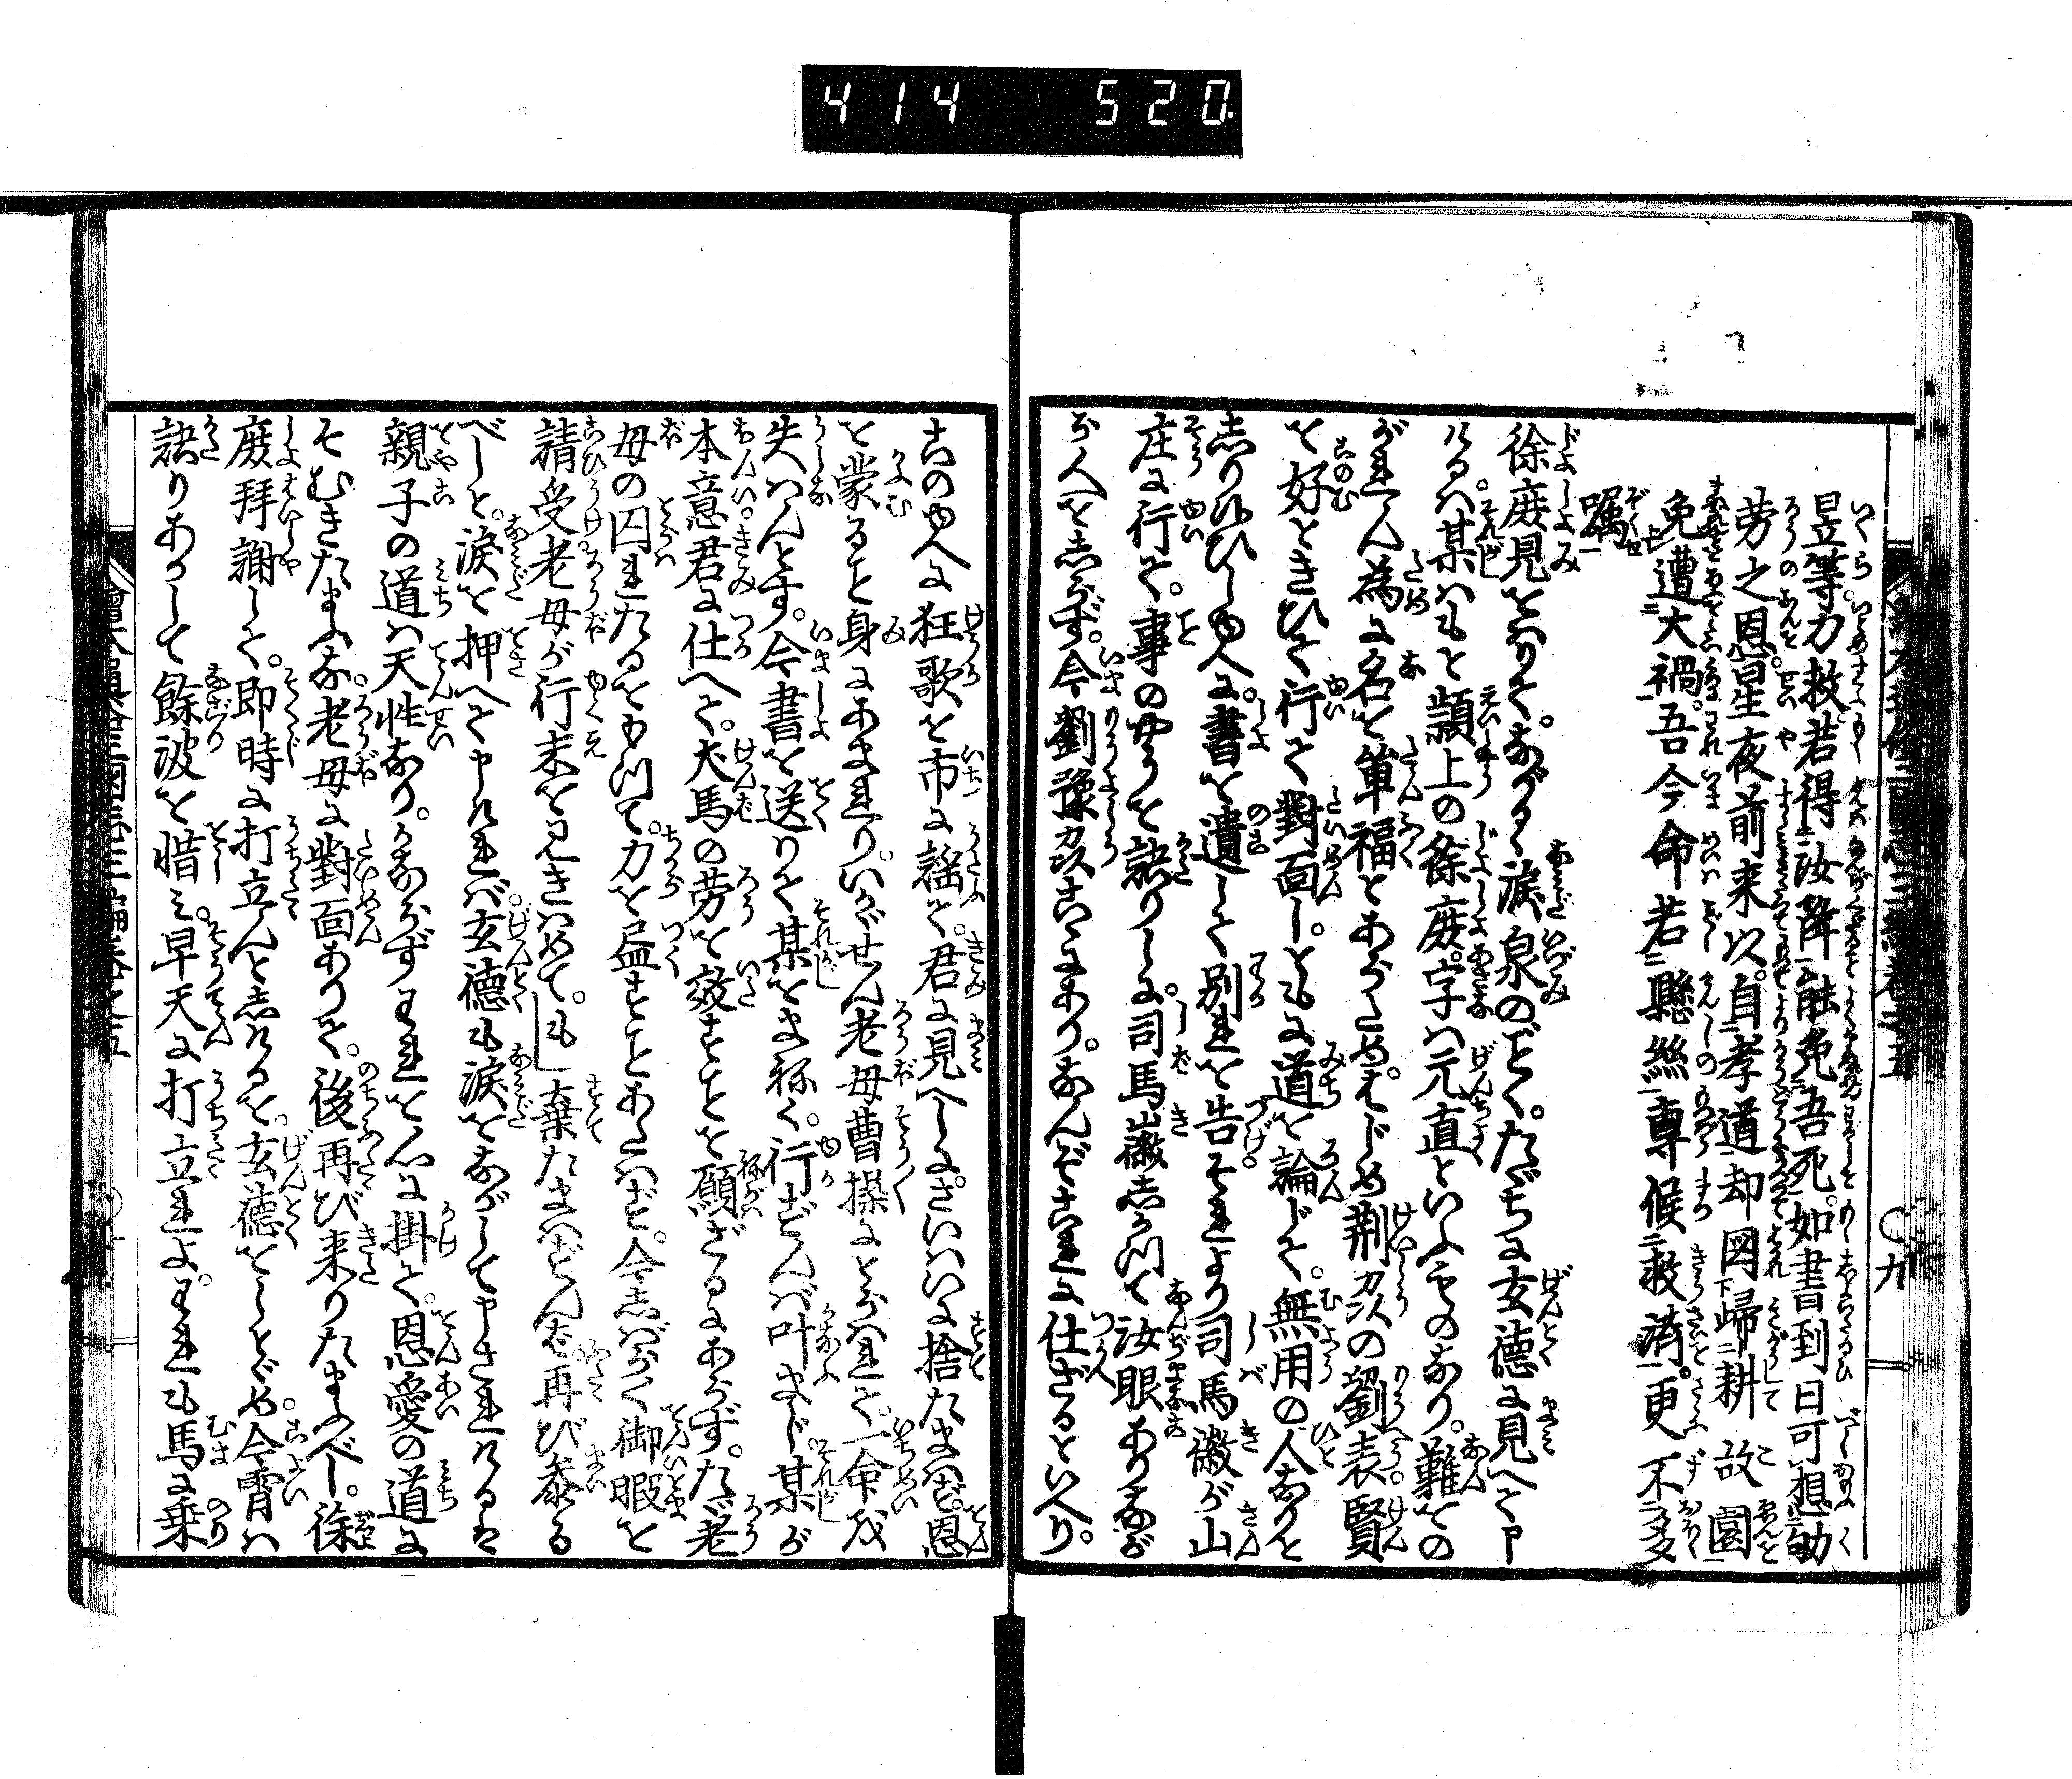 414 520.
昱等力救。若得汝降能免吾死。如書到日可想劬
労之恩。星夜前来以自孝道却図帰耕故園
免遭大禍。吾今命若懸絲専候救済。更不多
嘱
徐庶見をはりて。ながるゝ涙泉のごとく。たゞちに玄徳に見へて申
けるハ。某ハもと頴上の徐庶。字ハ元直といふものなり。難をの
がれん為に名を単福とあらためはじめ荊州の劉表賢
を好ときひて行て対面し。ともに道を論じて。無用の人なりと
しりぬひしゆへに。書を遺して別れを告それより司馬徽が山
庄に行て。事のやうを訣りしに。司馬徽しかつて汝眼ありなが
ら人をしらず。今劉豫州こゝにあり。なんぞこれに仕ざるといへり。
このゆへに狂歌を市に謡て。君に見へしにさいハいに捨たまはず。恩
を蒙ること身にあまれり。いかゞせん老母曹操にとらへれて。一命を
失ハんとす。今書を送りて某をまねく。行ずんバ叶まじ。某が
本意君に仕へて。犬馬の労を效すことを願ざるにあらず。たゞ老
母の囚れたるをもつて。力を盡すことあたハず。今しばらく御暇を
請受老母が行末を見きハめて。もし棄たまハずんバ再び泰る
べしと。涙を押へて申ければ。玄徳も涙をながして申されけるは
親子の道ハ天性なり。かならずわれを心に掛て。恩愛の道に
そむきたまふな。老母に対面ありて。後再び来りたまふべし。徐
庶拝謝して。即時に打立んとしけるを。玄徳をしとゞめ。今宵ハ
訣りあかして餘波を惜ミ。早天に打立れよ。われも馬に乗